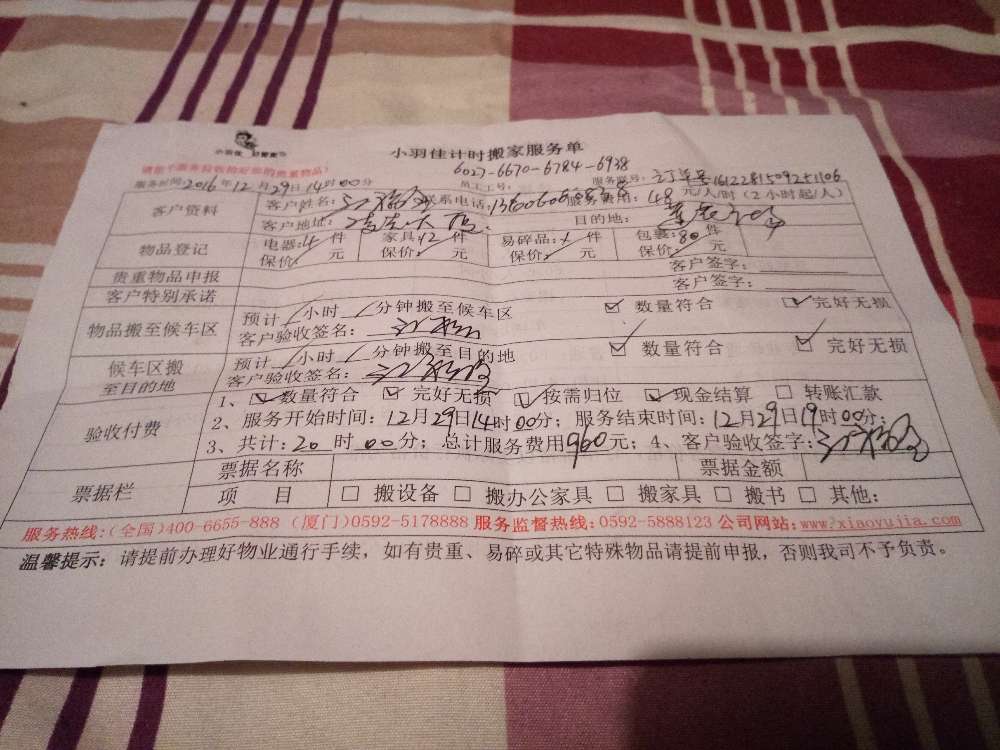 小羽佳计时搬家服务单
小羽佳
6027-6670-6784-6938
服务时间:2016年12月29日14时00分 员工工号: 订单号161228150925
客户资料 客户姓名: 联系电话: 服务费用:48元/人/时(2小时起/人)
客户地址: 目的地:
物品登记 电器:4件 家具:12件 易碎品: 件 包裹:80件
保价: 元 保价: 元 保价: 元 保价: 元
贵重物品申报 客户签字:
客户特别承诺 客户签字:
物品搬至候车区 预计 小时 分钟搬至候车区 数量符合 完好无损
客户验收签名:
候车区搬至目的地 预计 小时 分钟搬至目的地 数量符合 完好无损
客户验收签名:
验收付费 1、数量符合 完好无损 按需归位 现金结算 转账汇款
2、服务开始时间:12月29日14时00分;服务结束时间:12月29日19时00分;
3、共计:20时00分;总计服务费用960元;4、客户验收签字:
票据栏 票据名称 票据金额
项 目 搬设备 搬办公家具 搬家具 搬书 其他:
服务热线:(全国)400-6655-888 (厦门)0592-5178888 服务监督热线:0592-5888123 公司网站:www.xiaoyujia.com
温馨提示:请提前办理好物业通行手续,如有贵重、易碎或其它特殊物品请提前申报,否则我司不予负责。